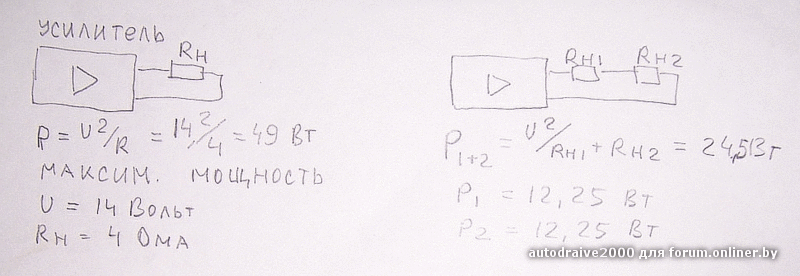 УСИЛИТЕЛЬ
RН
P = U²/R = 14²/4 = 49 Вт
МАКСИМ. МОЩНОСТЬ
U = 14 Вольт
RН = 4 ОМА
RН1 RН2
P1+2 = U²/RН1 + RН2 = 24,5Вт
P1 = 12,25 Вт
P2 = 12,25 Вт
autodraive2000 для forum.onliner.by